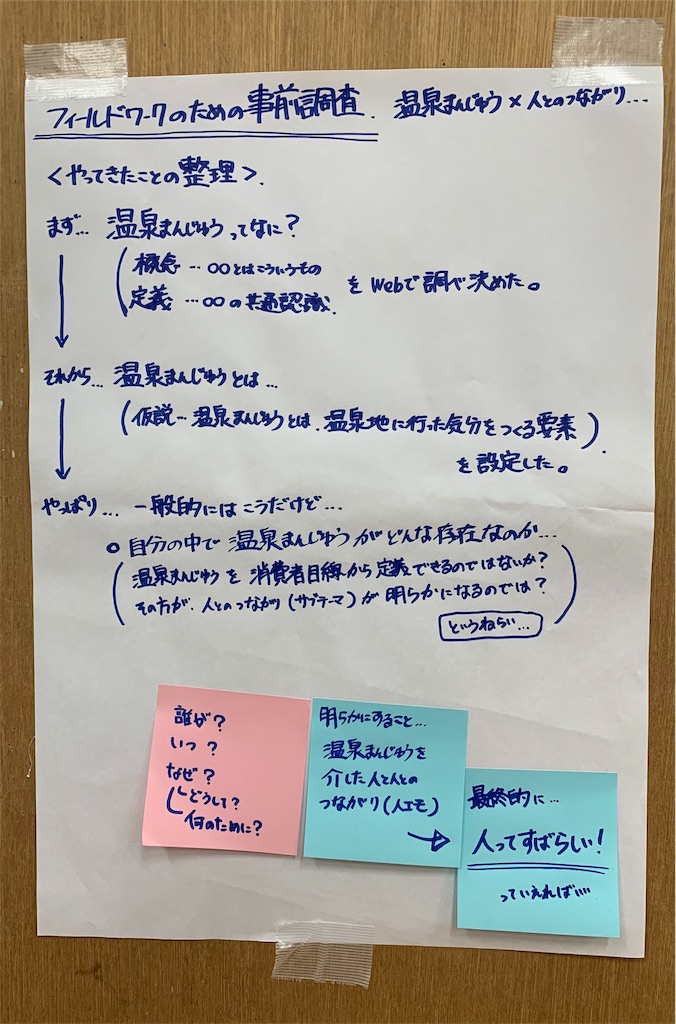 フィールドワークのための事前調査. 温泉まんじゅう×人とのつながり...
<やってきたことの整理>.
まず... 温泉まんじゅうってなに?
概念 … ○○とはこういうもの
定義 … ○○の共通認識.
をWebで調べ決めた。
それから... 温泉まんじゅうとは...
(仮説… 温泉まんじゅうとは、温泉地に行った気分をつくる要素).
を設定した。
やっぱり... 一般的にはこうだけど...
○ 自分の中で温泉まんじゅうがどんな存在なのか...
(温泉まんじゅうを消費者目線から定義できるのではないか?
その方が、人とのつながり(サブテーマ)が明らかになるのでは?)
というねらい...
誰が?
いつ?
なぜ?
どうして?
何のために?
明らかにすること...
温泉まんじゅうを
介した人と人との
つながり(人エモ)
最終的に...
人ってすばらしい!
っていえればいい